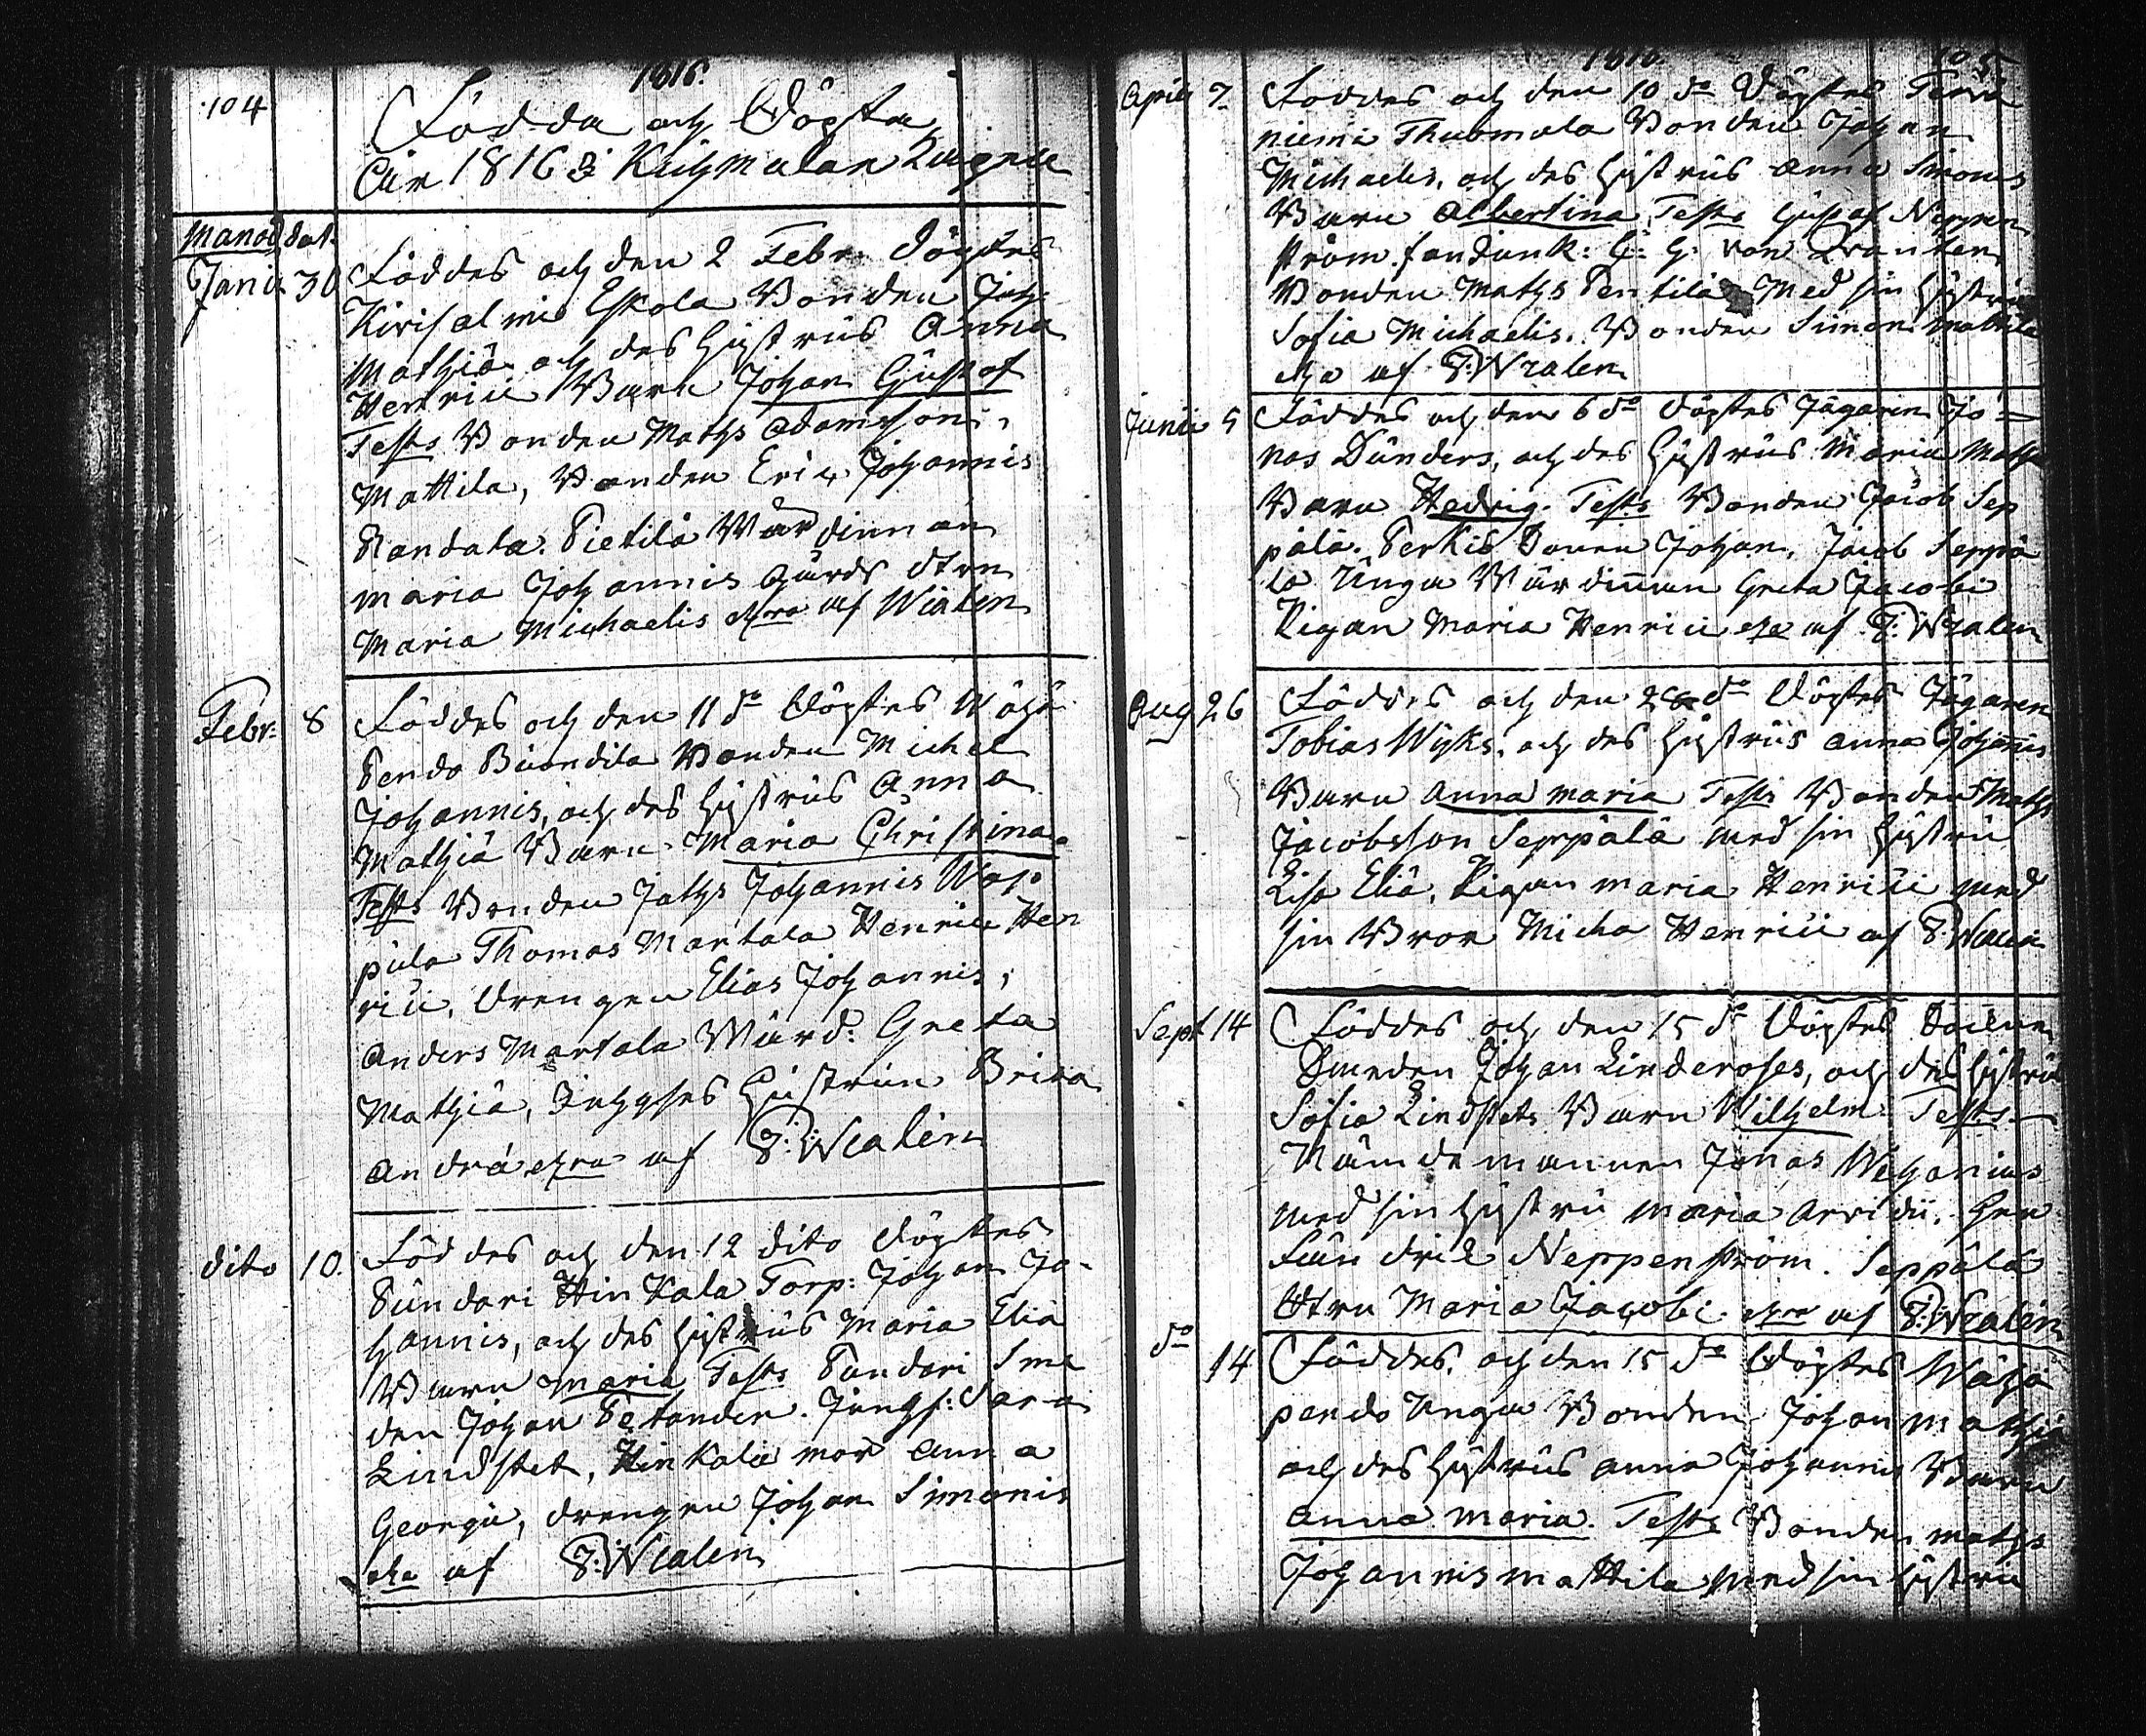 1816.
104
Födda och Döpta
åår 1816 i Kuhmalax
Manad dat.
Janu 30 Föddes och den 2 Febr. döptes
Kirisalmis Eskola Bonden Joh
Mathiæ och des hustrus Anna
Henrici Barn Johan Gustaf
Tests Bonden Mathz Adamsson
Mattila, Bonden Eric Johannis
Randala. Pietilä Wärdinnan
Maria Johannis Gårds dtren
Maria Michaelis af Wialen
Febr: 8 Föddes och den 11 do Döptes Wähä
Pendo Bonden Michel
Johannis, och des hustrus Anna
Mathiä Barn Maria Christina
Tests Bonden Johannis
Thomas Martala Henrici Hen
rici, Drengen Elias Johannis,
Anders Martala Wärd: Greta
Mathiä, hustrun Brita
Andrä af Wialen
dito 10. Föddes och den 12 dito döptes
Sundari Hinkala Torp: Johan Jo-
hannis, och des hustrus Maria Eliä
Barn Maria Tests Sundari Sme
den Johan Petander. Jungf: Sara
Lindstet, Hinkala mor Anna
Georgii, drengen Johan Simonis
af Wialen
1816. 105
April 7. Föddes och den 10 do Döptes Terva
niemi Thuomola Bonden Johan
Michaelis, och des hustrus Anna Simonis
Barn Albertina Tests Gustaf Neppen
ström. fändrik: C: G: von Qvanten
Bonden Mathz Pentilä Med sin hustru
Sofia Michaelis. Bonden Simon Mattila
af Wialen
Junii 5 Föddes och den 6 do döptes Jägaren Jo=
nas Dunders, och des hustrus Maria Math
Barn Hedvig. Tests Bonden Jacob Sep
pälä. Perkiö Sonen Johan, Jacob Seppä
lä Unga Wärdinnan Greta Jacobi
Pigan Maria Henrici af Wialen
Aug 26 Föddes och den 28 do Döptes Jägaren
Tobias Wijks, och des hustrus Anna Johannis
Barn Anna Maria Tests Bonden Mathz
Jacobsson Seppälä med sin hustru
Lisa Eliä, Pigan Maria Henrici med
sin Bror Micha Henrici af Wialen
Sept 14 Föddes och den 15 do Döptes
Smeden Johan Linderoses, och des hustru
Sofia Lindstets Barn Wilhelm Tests
Nämdemannen Jonas Wegonius
med sin hustru Maria Arvidii,
fändrik Neppenström. Seppälä
Dtren Maria Jacobi af Wialen
do 14 Föddes, och den 15 do Döptes Wähä
pendo Unga Bonden Johan Mathiä
och des hustrus Anna Johannis Barn
Anna Maria. Tests Bonden Mathz
Johannis Mattila med sin hustru